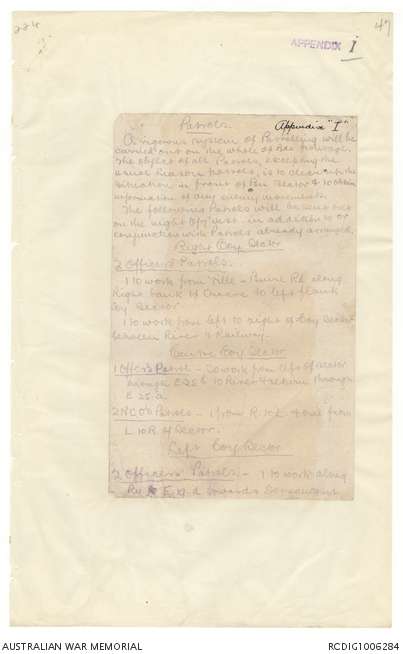 224
47
APPENDIX I
Appendix "I"
Patrols.
A vigorous system of Patrolling will be
carried out on the whole of Bde
The object of all Patrols, excepting the
usual liaison patrols, is to clear up the
situation in front of Bn Sector & to obtain
information of any enemy movement.
The following Patrols will be sent out
on the night in addition to or
conjunction with Patrols already arranged.
Right Coy Sector
2 Officers Patrols.
1 to work from Ville - Rd along
Right bank of Ancre to left flank
Coy Sector
1 to work from left to right of Coy Sector
between River & Railway.
Centre Coy Sector
1 Officers Patrol - To work from of Sector
through E25b to River & return through
E 25.a.
2 NCO's Patrols - 1 from R. to L. & one from
L to R of Sector.
Left Coy Sector
2 Officers' Patrols. - 1 to work along
towards Dernancourt
AUSTRALIAN WAR MEMORIAL
RCDIG1006284